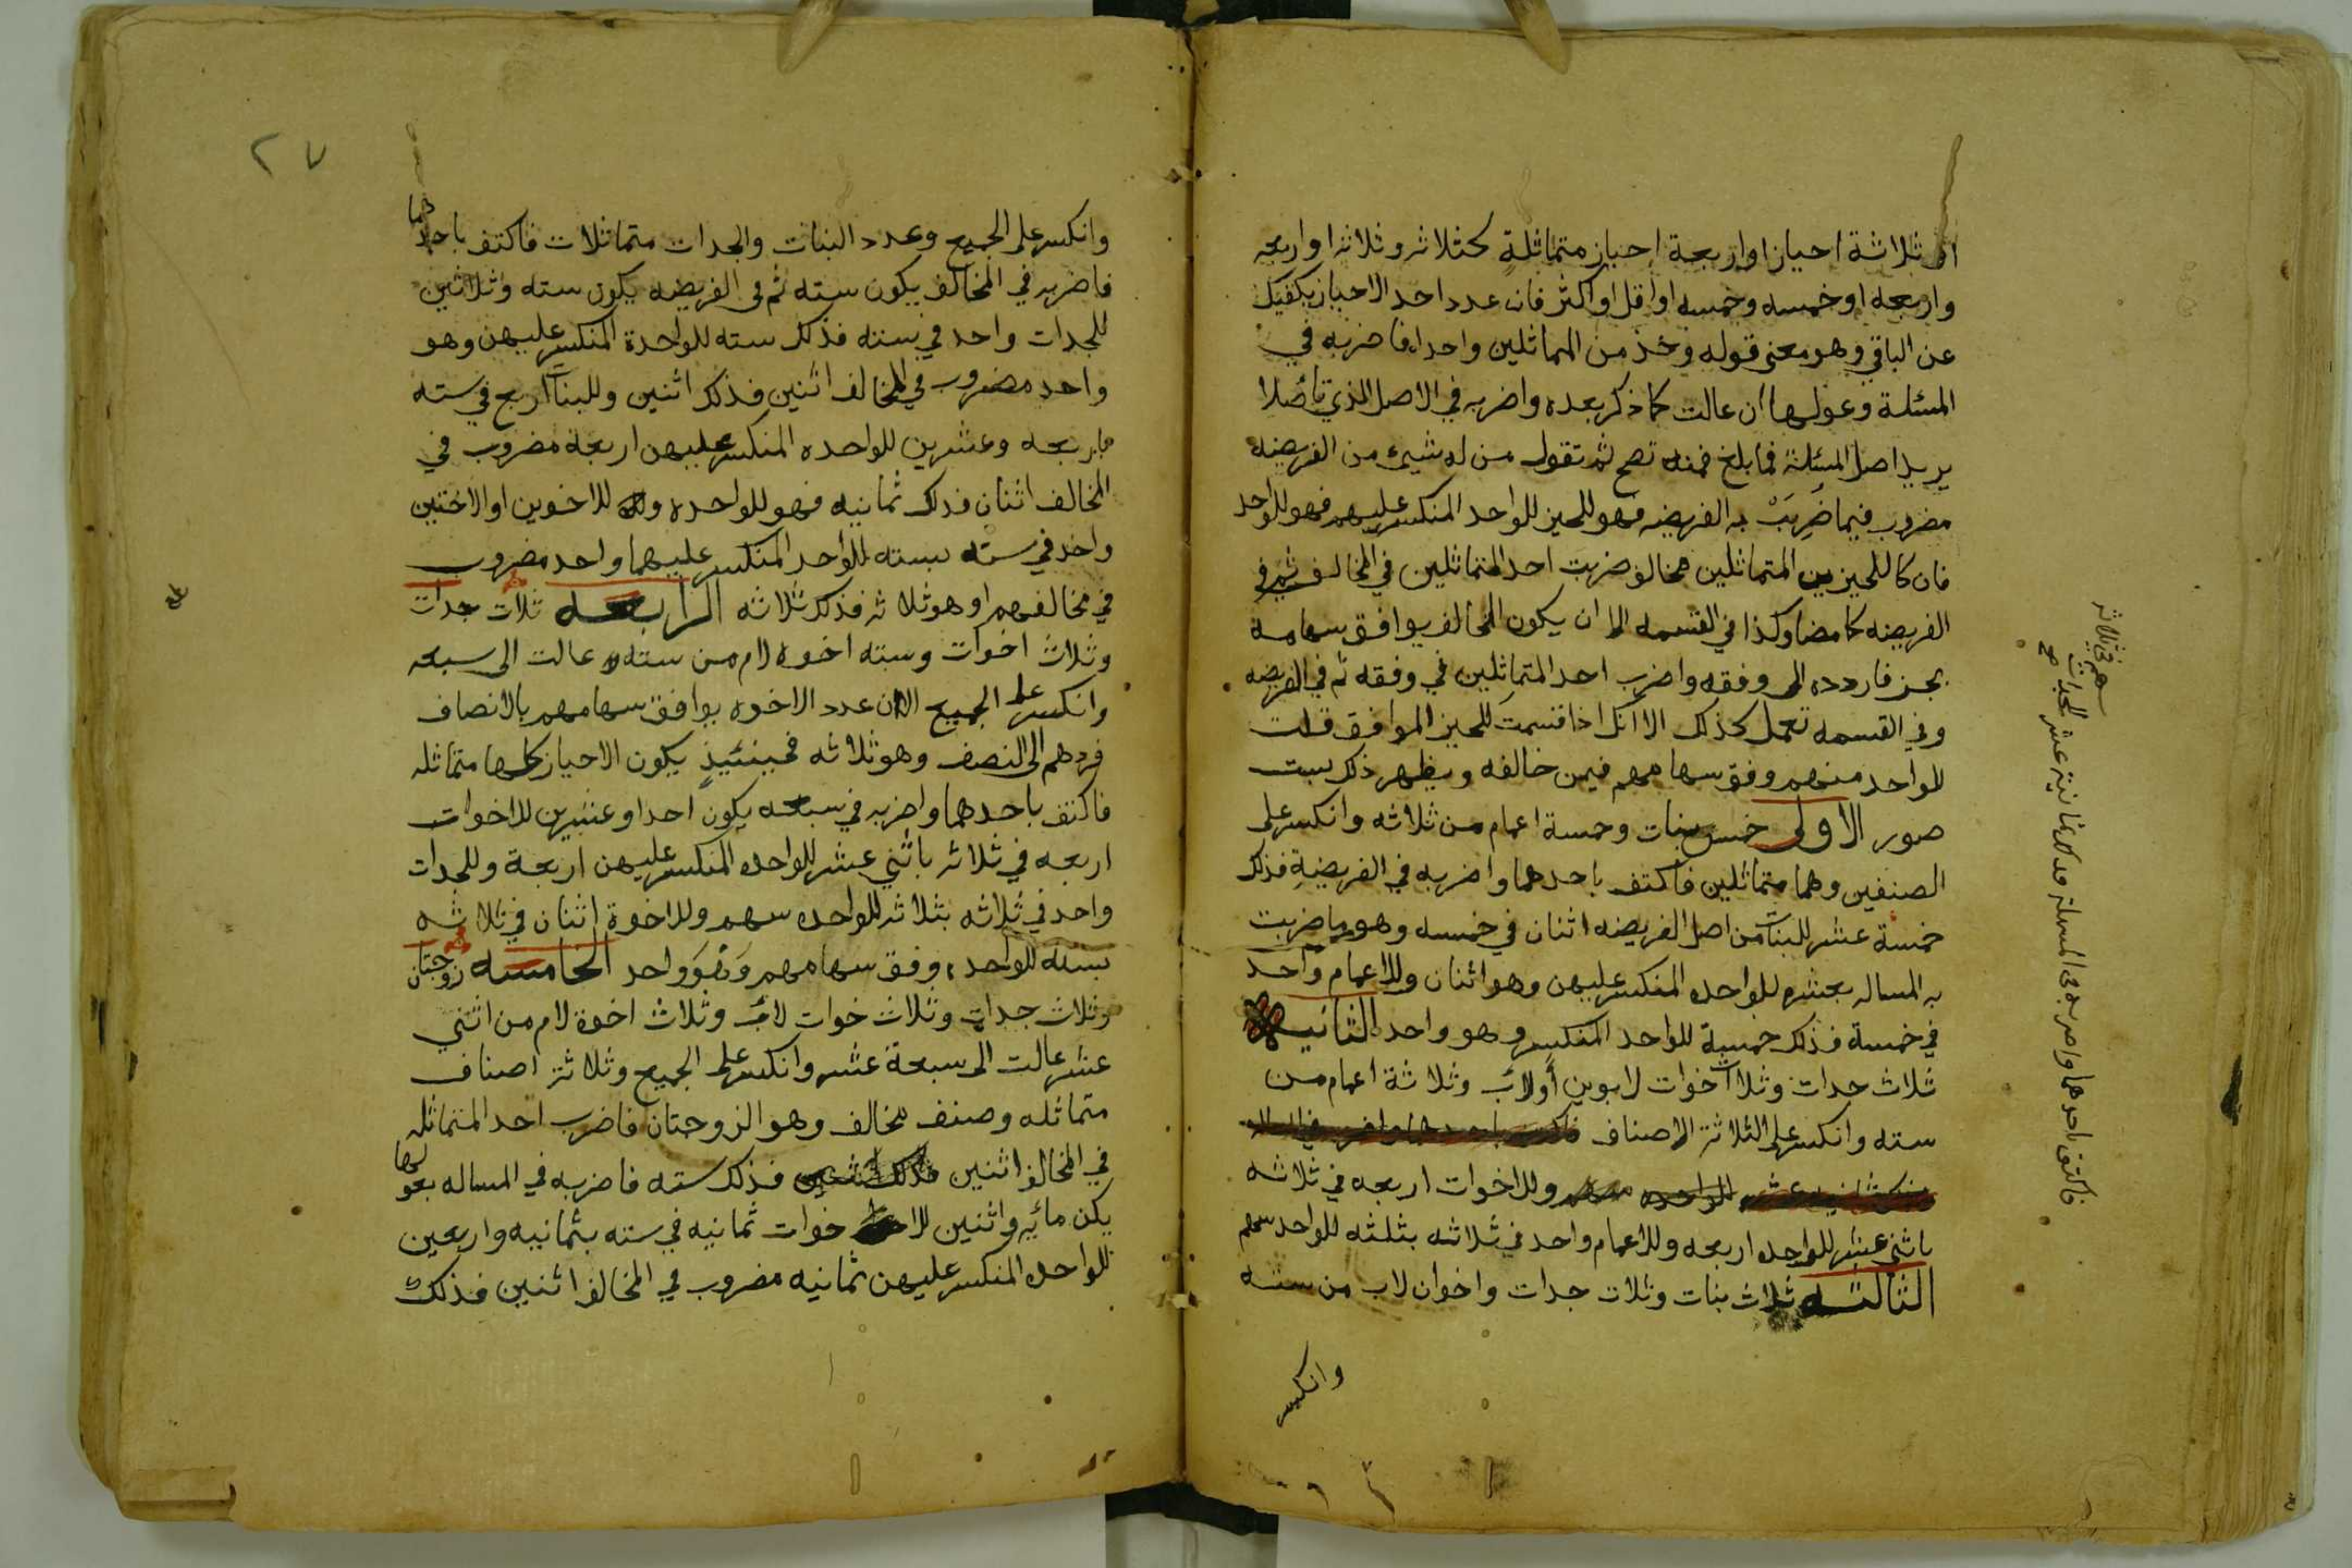 او ثلاثة احياز او اربعة احياز متماثلة كثلاثه وثلاثه او اربعه
واربعه او خمسه وخمسه او اقل او اكثر فان عدد احد الاحياز يكفيك
عن الباقي وهو معنى قوله وخذ من المماثلين واحدا فاضربه في
المسئلة وعولها ان عالت كما ذكر بعده واضربه في الاصل الذي تأصلا
يريد اصل المسئلة فما بلغ فمنه تصح ثم تقول من له شيئ من الفريضه
مضروب فيما ضربت به الفريضه فهو للحيز للواحد المنكسر عليهم فهو للواحد
فان كا للحيزين المتماثلين مخالف ضربت احد المتماثلين في المخالف ثم في
الفريضه كما مضا وكذا في القسمه الا ان يكون المخالف يوافق سهامه
بجز فاردده الى وفقه واضرب احد المتماثلين في وفقه ثم في الفريضه
وفي القسمه تعمل كذلك الا انك اذا قسمت للحيز الموافق قلت
للواحد منهم وفق سهامهم فيمن خالفه ويظهر ذلك بست
صور الاولى خمس بنات وخمسة اعمام من ثلاثه وانكسر على
الصنفين وهما متماثلين فاكتف باحدهما واضربه في الفريضة فذلك
خمسة عشر للبنات من اصل الفريضه اثنان في خمسه وهو ما ضربت
به المساله بعشره للواحده المنكسر عليهن وهو اثنان وللاعمام واحد
في خمسة فذلك خمسة للواحد المنكسر وهو واحد الثانيه
ثلاث جدات وثلاث اخوات لابوين أو لاب وثلاثة اعمام من
سته وانكسر على الثلاثة الاصناف
وللاخوات اربعه في ثلاثه
باثني عشر للواحده اربعه وللاعمام واحد في ثلاثه بثلثه للواحد سهم
الثالثه ثلاث بنات وثلاث جدات واخوان لاب من سته
وانكسر
فاكتف باحدهما واضربه في المسئلة فذلك ثمانية عشر للجدات
سهم في ثلاثه
صح
٢٧
وانكسر على الجميع وعدد البنات والجدات متماثلات فاكتف باحدهما
فاضربه في المخالف يكون سته ثم في الفريضه يكون سته وثلاثين
للجدات واحد في سته فذلك سته للواحدة المنكسر عليهن وهو
واحد مضروب في المخالف اثنين فذلك اثنين وللبنات اربع في سته
باربعه وعشرين للواحده المنكسر عليهن اربعة مضروب في
المخالف اثنان فذلك ثمانيه فهو للواحده وللاخوين او الاختين
واحد في سته بسته للواحد المنكسر عليهما واحد مضروب
في مخالفهم او هو ثلاثه فذلك ثلاثه الرابعه ثلاث جدات
وثلاث اخوات وسته اخوه لام من سته وعالت الى سبعه
وانكسر على الجميع الا ان عدد الاخوه يوافق سهامهم بالانصاف
فردهم الى النصف وهو ثلاثه فحينئيذ يكون الاحياز كلها متماثله
فاكتف باحدهما واضربه في سبعه يكون احدا وعشرين للاخوات
اربعه في ثلاثه باثني عشر للواحده المنكسر عليهن اربعة وللجدات
واحد في ثلاثه بثلاثه للواحده سهم وللاخوة اثنان في ثلاثه
بسته للواحد وفق سهامهم وهو واحد الخامسه زوجتان
وثلاث جدات وثلاث خوات لاب وثلاث اخوة لام من اثني
عشر عالت الى سبعة عشر وانكسر على الجميع وثلاثة اصناف
متماثله وصنف مخالف وهو الزوجتان فاضرب احد المتماثله
في المخالف اثنين فذلك سته فاضربه في المساله بعولها
يكن مائه واثنين للاخوات ثمانيه في سته بثمانيه واربعين
للواحده المنكسر عليهن ثمانيه مضروب في المخالف اثنين فذلك